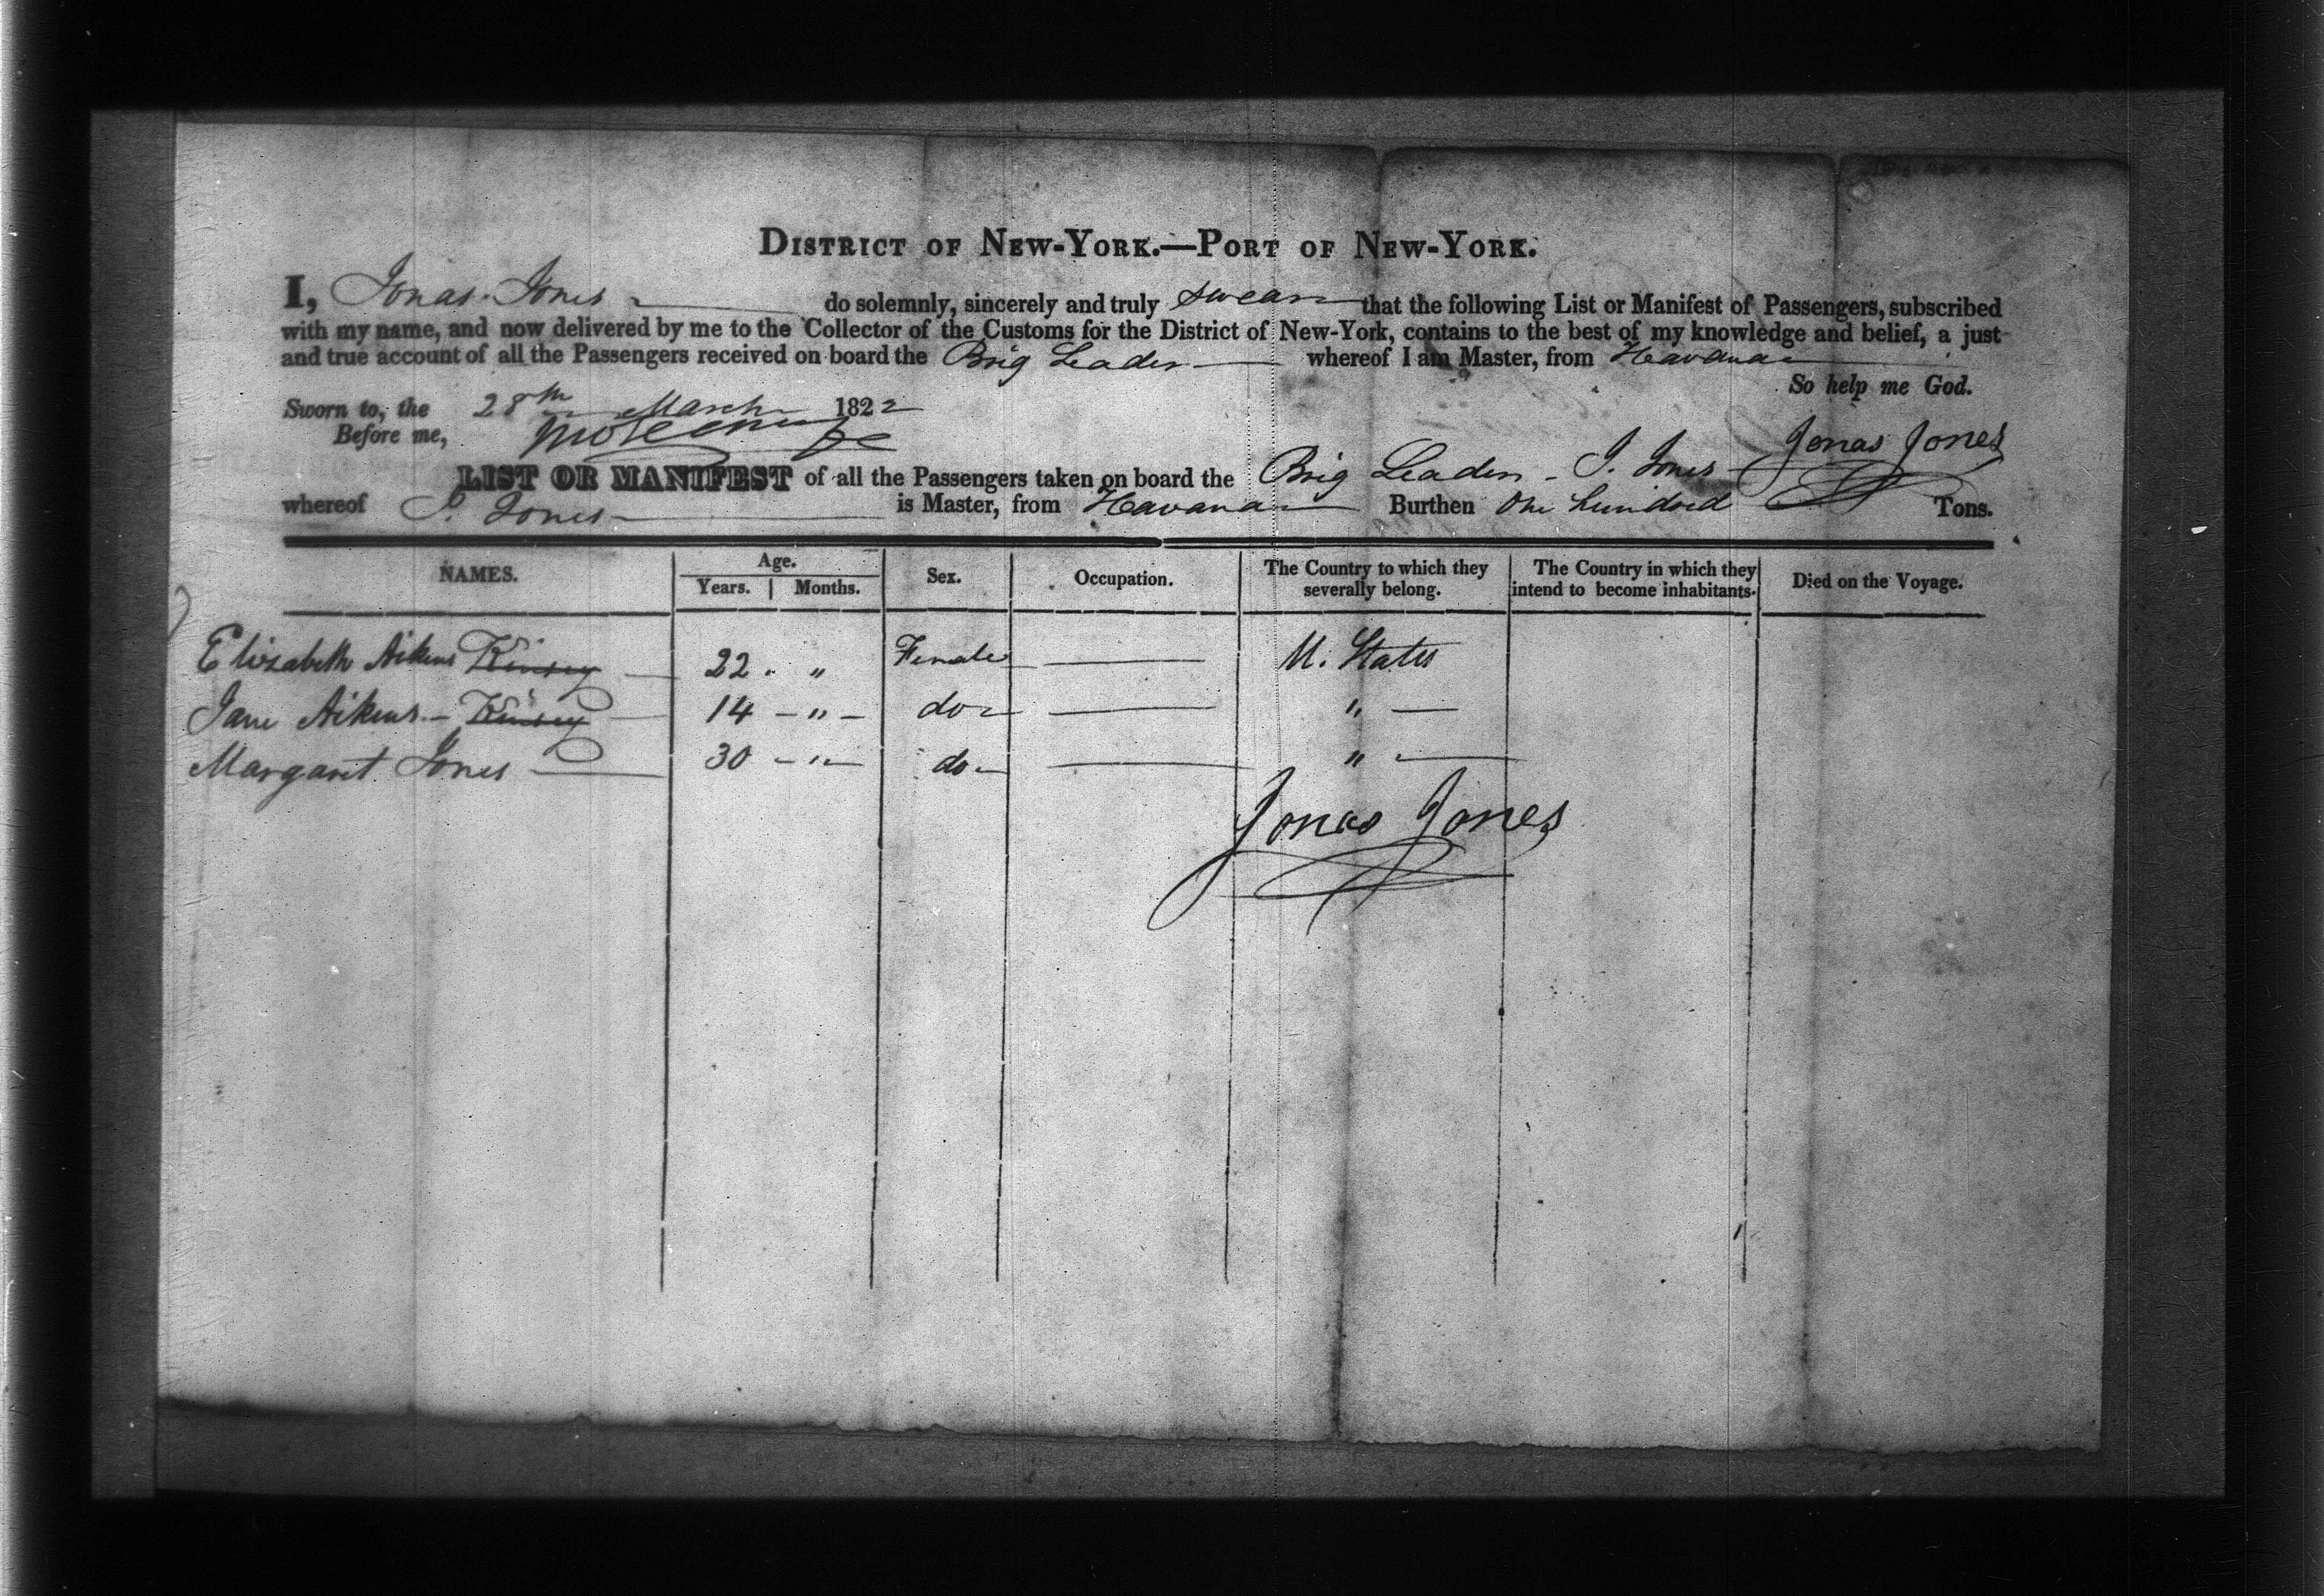 DISTRICT OF NEW-YORK.—PORT OF NEW-YORK.
I, Jonas Jones do solemnly, sincerely and truly swear that the following List or Manifest of Passengers, subscribed
with my name, and now delivered by me to the Collector of the Customs for the District of New-York, contains to the best of my knowledge and belief, a just
and true account of all the Passengers received on board the Brig Leader whereof I am Master, from Havana
So help me God.
Sworn to, the 28th March 1822
Before me,
Jonas Jones
LIST OR MANIFEST of all the Passengers taken on board the Brig Leader - J. Jones
whereof J. Jones is Master, from Havana Burthen One hundred Tons.
NAMES. Age. Years. Months. Sex. Occupation. The Country to which they severally belong. The Country in which they intend to become inhabitants. Died on the Voyage.
Elizabeth Aikens Kinsey 22 " Female U. States
Jane Aikens - Kinsey 14 - " - do "
Margaret Jones 30 - " - do "
Jonas Jones